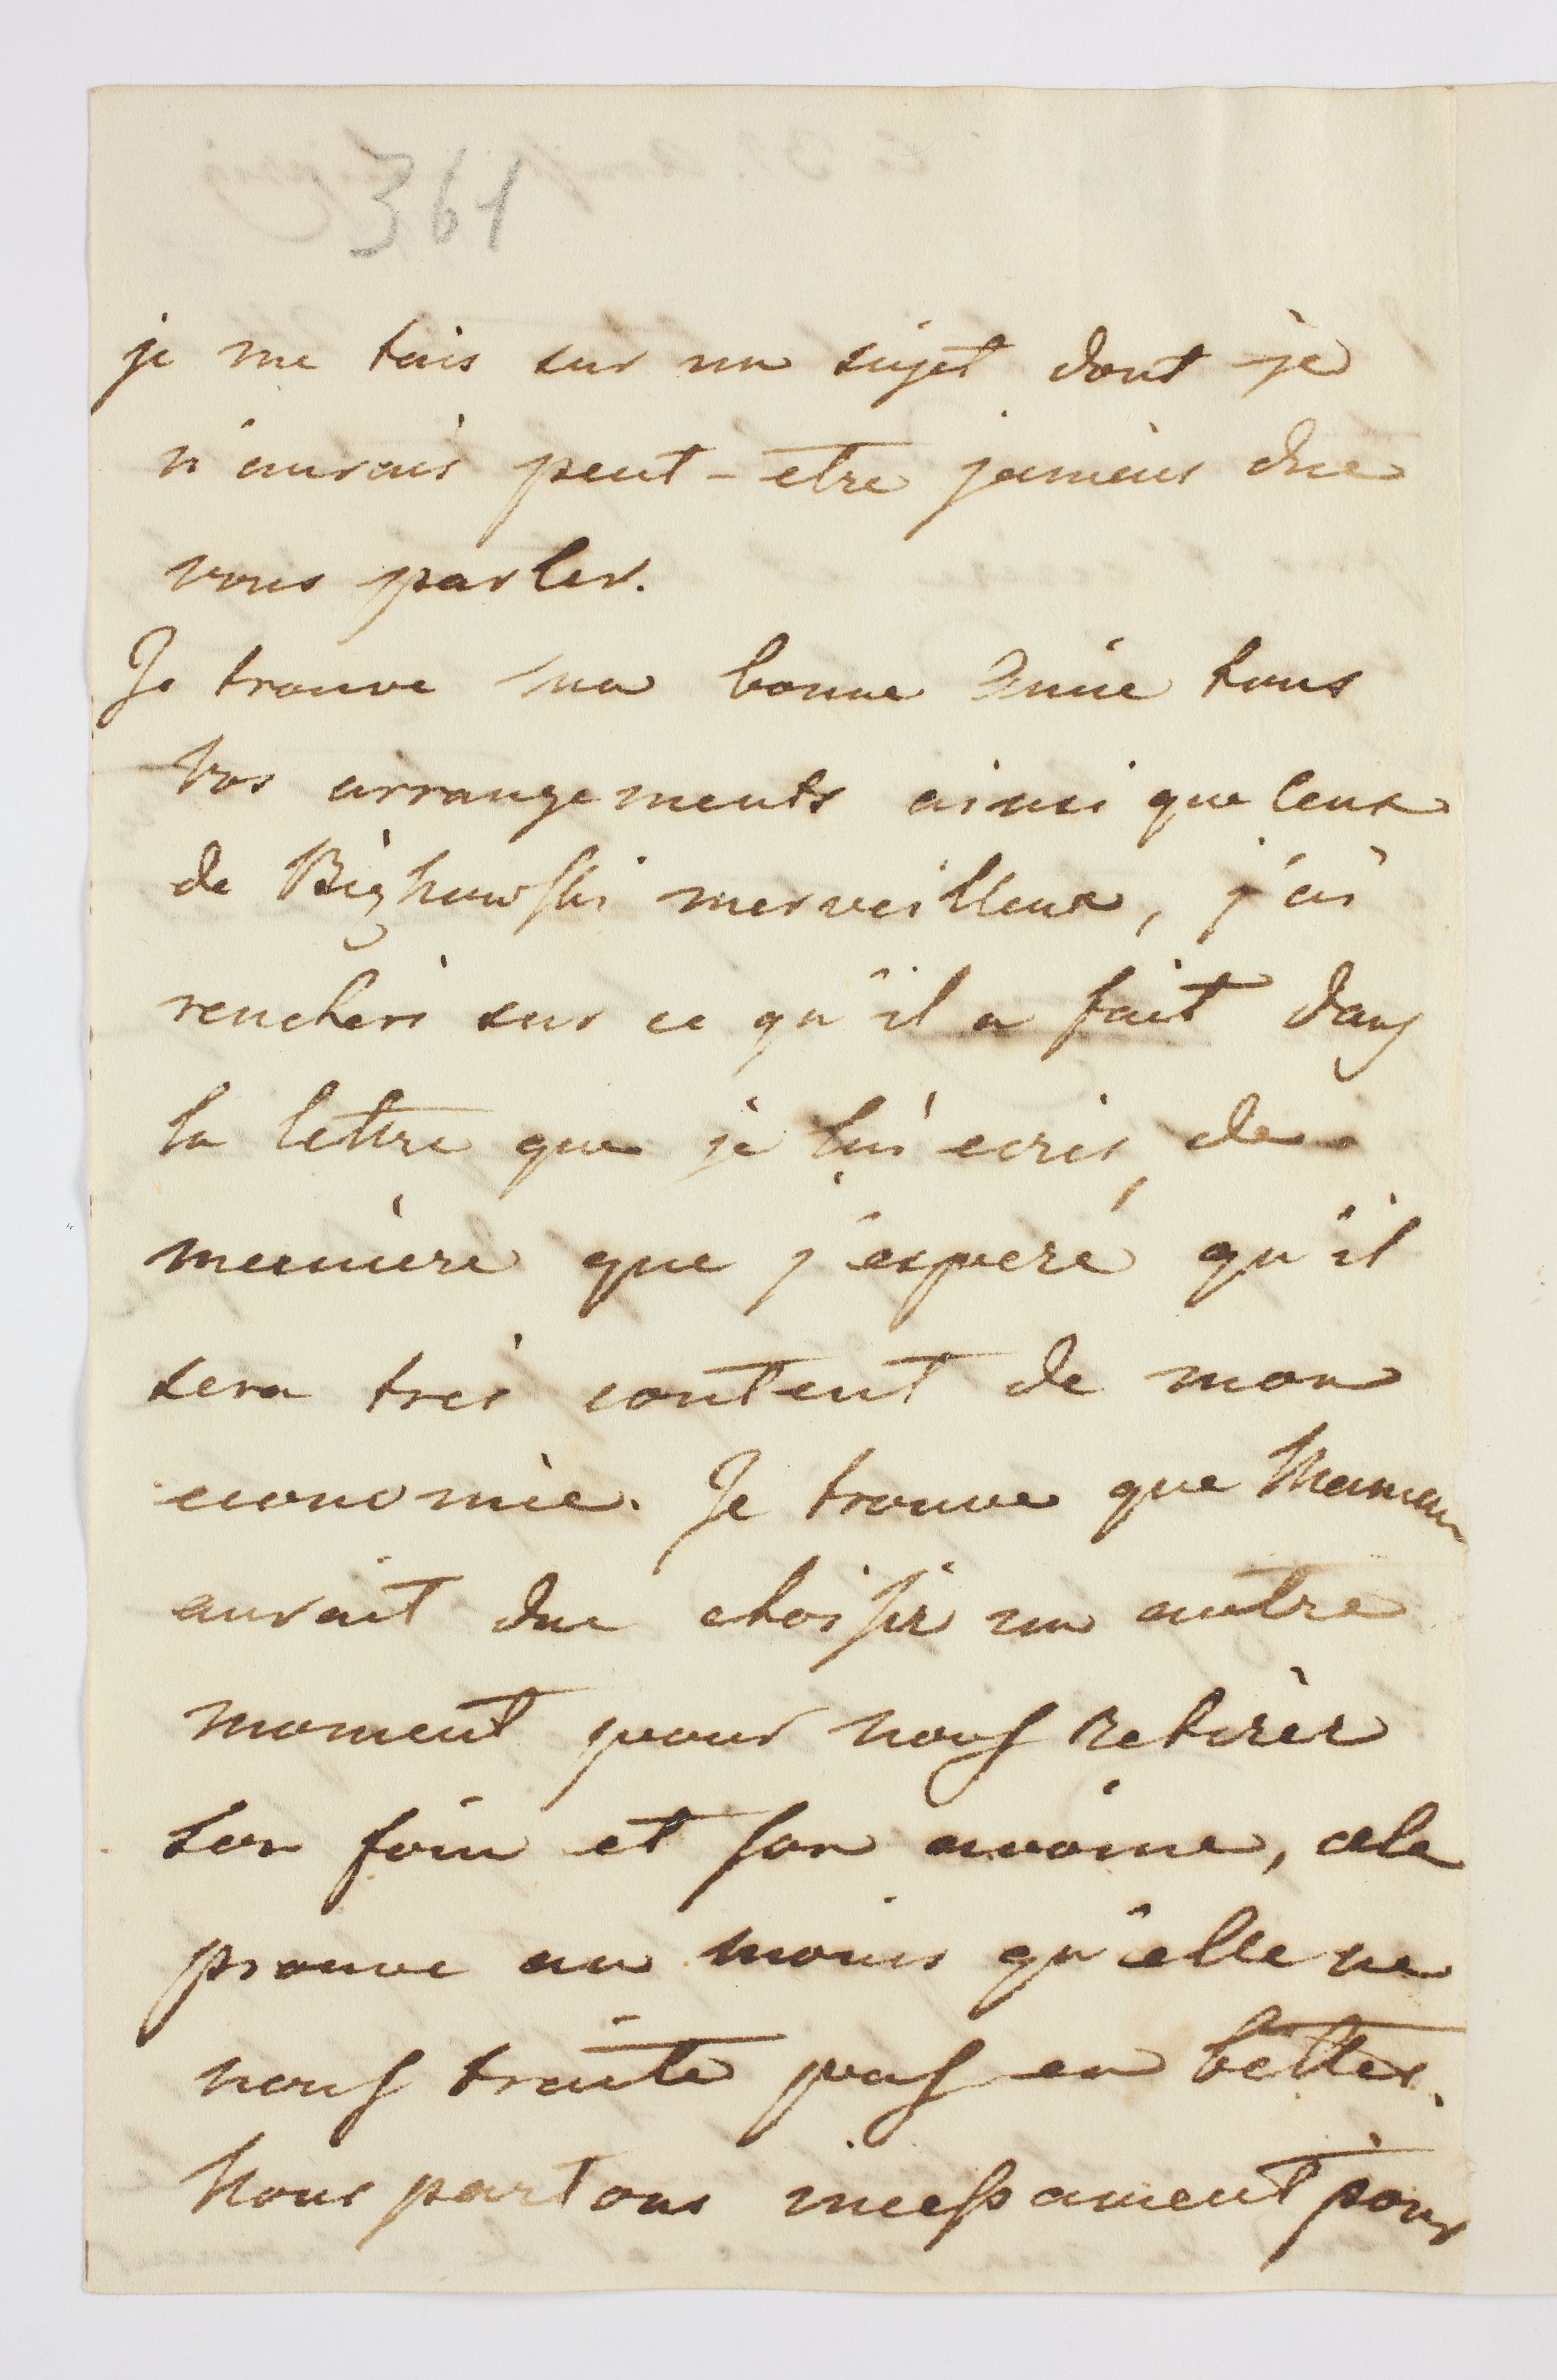 361
je me tais sur un sujet dont je
n'aurais peut-etre jamais due
vous parler.
Je trouve ma bonne Amie tous
Vos arrangements ainsi que ceux
de merveilleux, j'ai
rencheri sur ce qu'il a fait dans
la lettre que je lui ecris, de
maniere que j'espere qu'il
sera tres content de mon
economie. Je trouve que Maman
aurait due choisir un autre
moment pour nous retirer
son foin et son avoine, cela
prouve au moins qu'elle ne
nous traite pas en bettes.
Nous partons incessament pour